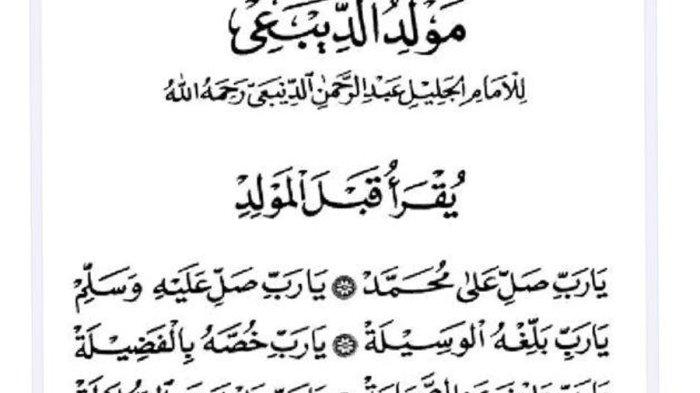 مَوْلِدُ الدِّيْبَعِيْ
لِلْإِمَامِ الْجَلِيْلِ عَبْدِ الرَّحْمٰنِ الدِّيْبَعِيّ رَحِمَهُ اللهُ
يُقْرَأُ قَبْلَ الْمَوْلِدِ
يَارَبِّ صَلِّ عَلٰى مُحَمَّدْ ۞ يَارَبِّ صَلِّ عَلَيْهِ وَسَلِّمْ
يَارَبِّ بَلِّغْهُ الْوَسِيْلَةْ ۞ يَارَبِّ خُصَّهُ بِالْفَضِيْلَةْ